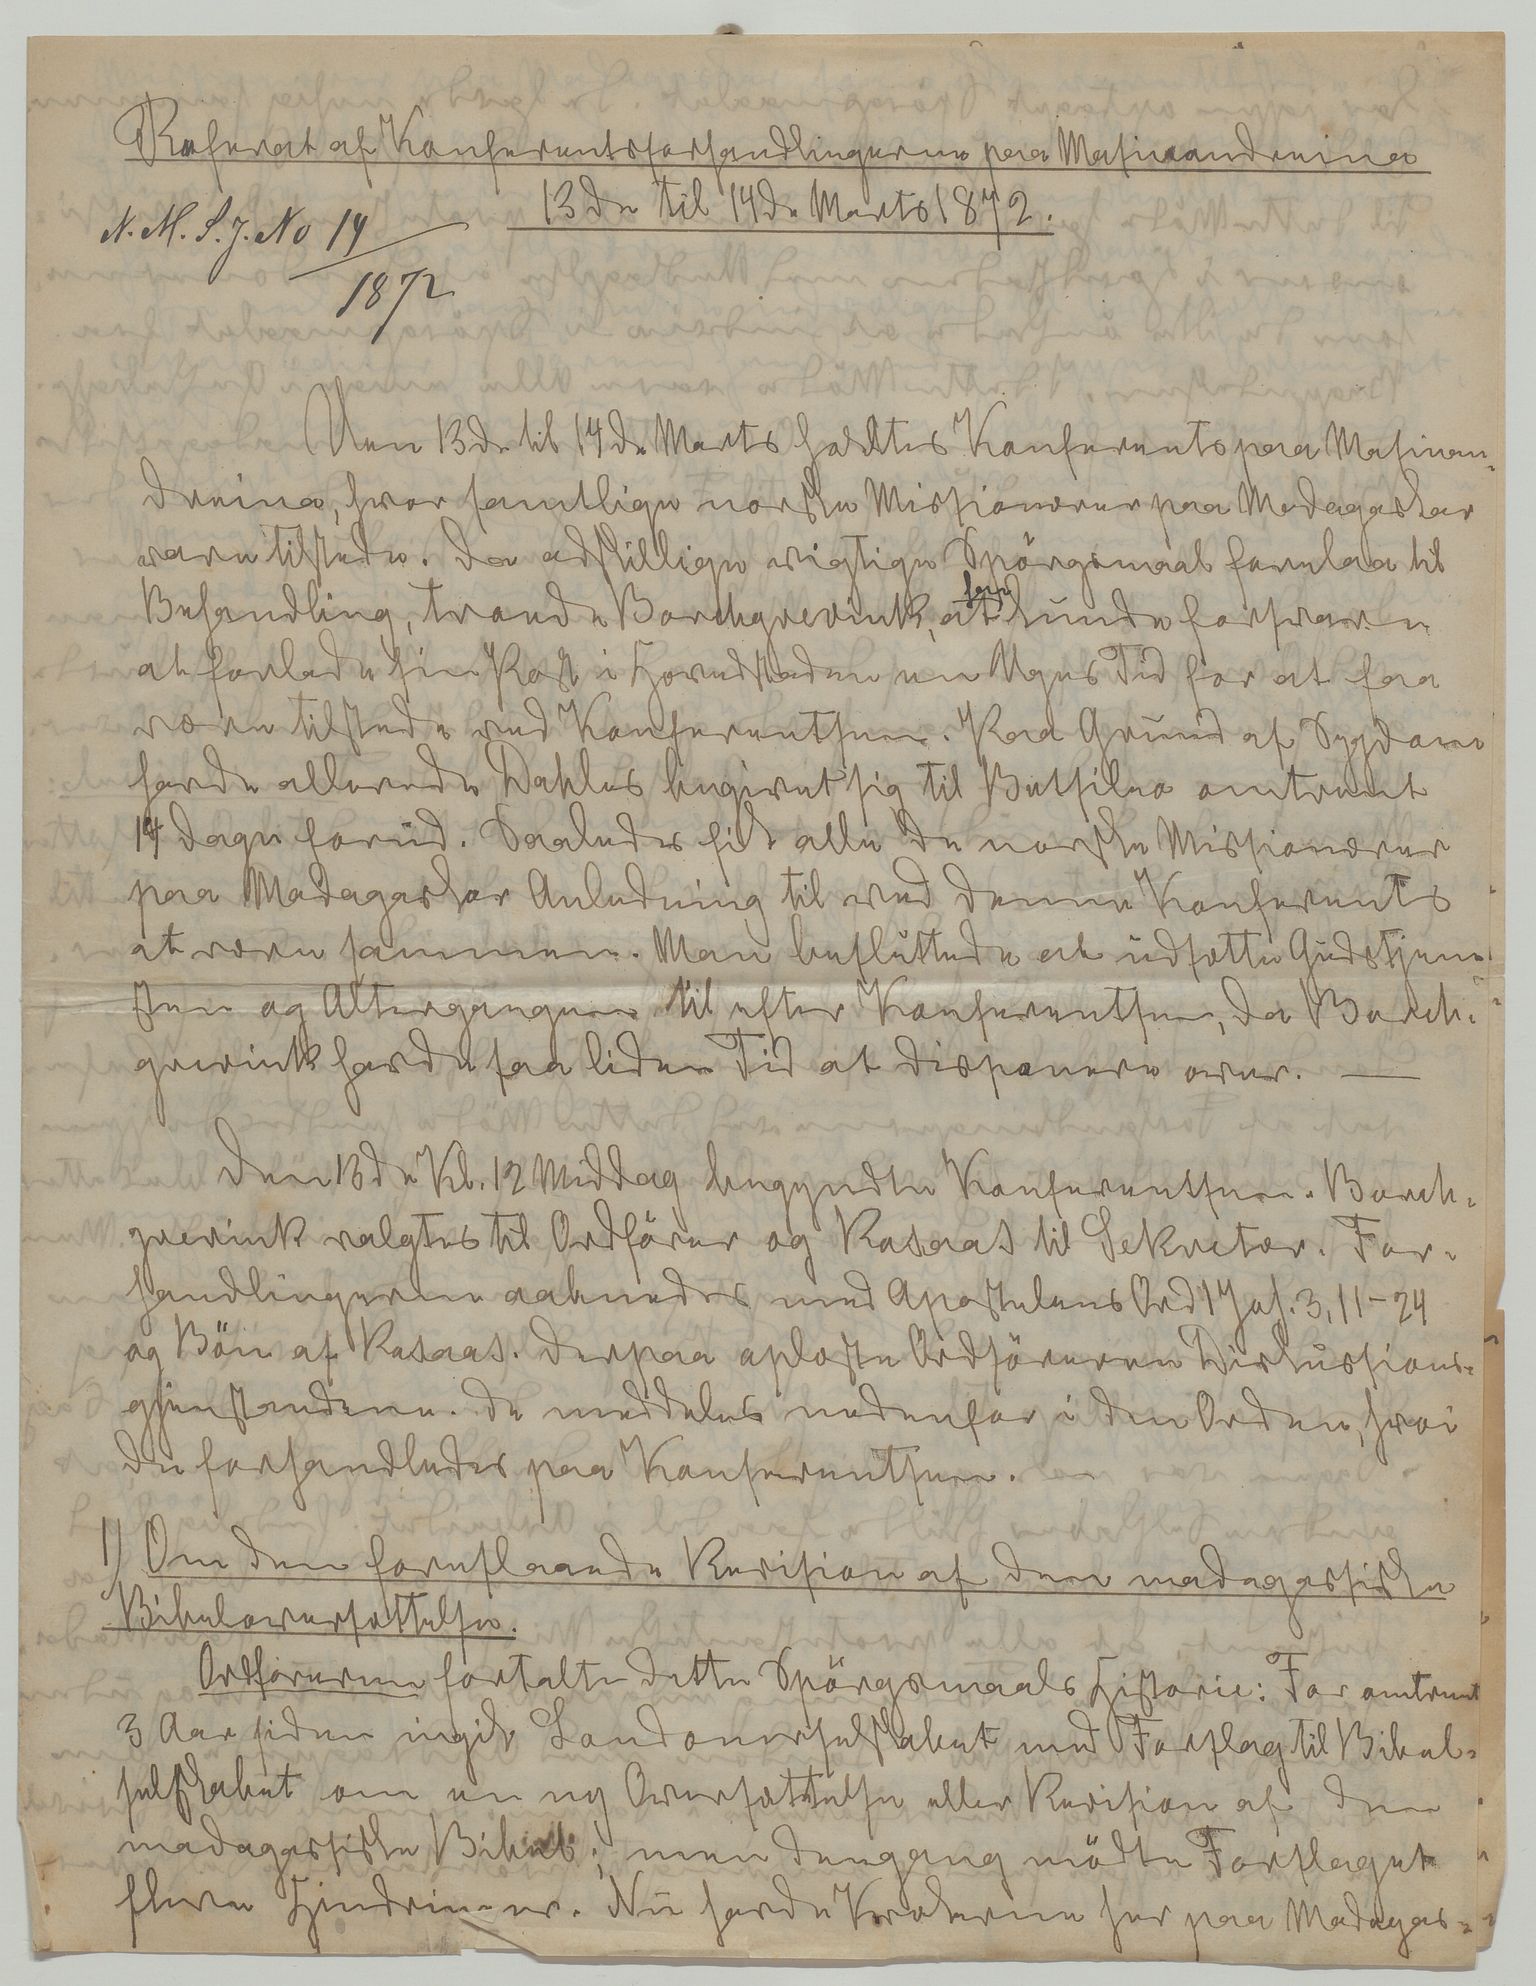 Referat af Konferentsforhandlingerne paa Masinandreina
13de til 14de Marts 1872.
N. M. S. J. No 14
1872
Den 13de til 14de Marts holdtes Konferents paa Masinan-
dreina, hvor samtlige norske Missionærer paa Madagaskar
vare tilstede. Da adskillige vigtige Spörgsmaal forelaa til
Behandling, troede Borchgrevink, at han kunde forsvare
at forlade sin Post i Hovedstaden en Uges Tid for at faa
være tilstede ved Konferentsen. Paa Grund af Sygdom
havde allerede Dahles begivet sig til Betsileo omtrent
14 Dage forud. Saaledes fik alle de norske Missionærer
paa Madagaskar Anledning til ved denne Konferents
at være sammen. Man besluttede at udsætte Gudstjene-
sten og Altergangen til efter Konferentsen, da Borch-
grevink havde saa liden Tid at disponere over. —
Den 13de Kl. 12 Middag begyndte Konferentsen. Borch-
grevink valgtes til Ordförer og Rosaas til Sekretær. For-
handlingerne aabnedes med Apostelens Ord 1 Joh. 3, 11-24
og Bön af Rosaas. Derpaa oplæste Ordföreren Diskussions-
gjenstandene. De meddeles nedenfor i den Orden, hvori
de forhandledes paa Konferentsen.
1) Om den foreslaaede Revision af den madagassiske
Bibeloversættelse.
Ordföreren fortalte dette Spörgsmaals Historie: For omtrent
3 Aar siden indgik Londonerselskabet med Forslag til Bibel-
selskabet om en ny Oversættelse eller Revision af den
madagassiske Bibel; men dengang mödte Forslaget
flere Hindringer. Nu havde Kvækerne her paa Madagas-